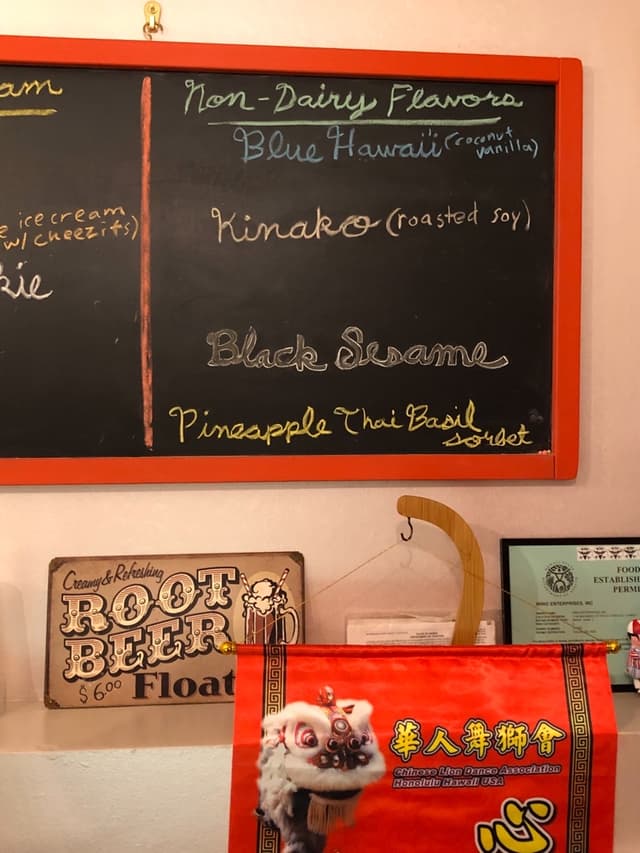 am
e ice cream
w/ cheezits)
kie
Non-Dairy Flavors
Blue Hawaii (coconut
vanilla)
Kinako (roasted soy)
Black Sesame
Pineapple Thai Basil
sorbet
Creamy & Refreshing
ROOT
BEER
$6.00 Float
FOOD
ESTABLISH
PERMI
華人舞獅會
Chinese Lion Dance Association
Honolulu Hawaii USA
心